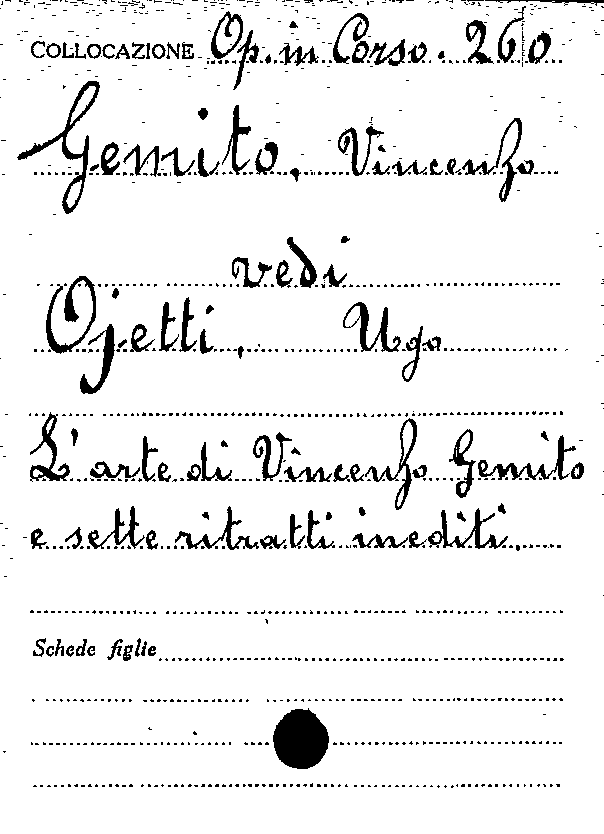 COLLOCAZIONE Op. in Corso. 260
Gemito, Vincenzo
vedi
Ojetti, Ugo
L'arte di Vincenzo Gemito
e sette ritratti inediti.
Schede figlie